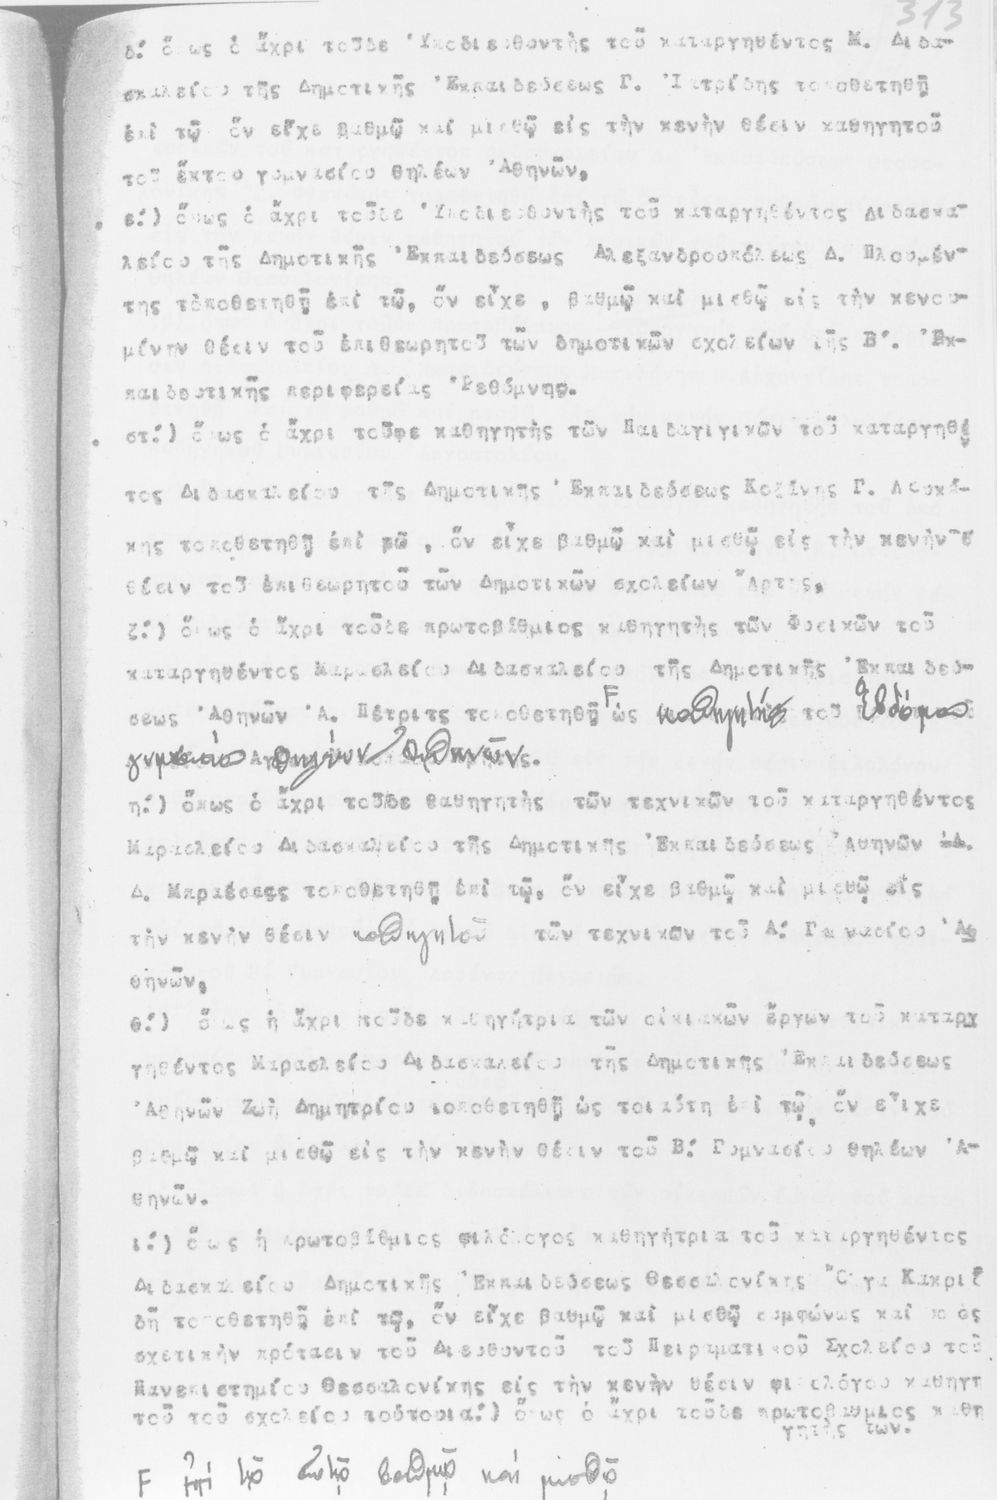 313
δ.΄ ὅπως ὁ ἄχρι τοῦδε Ὑποδιευθυντὴς τοῦ καταργηθέντος Μ. Διδα-
σκαλείου τῆς Δημοτικῆς Ἐκπαιδεύσεως Γ. Ἰατρίδης τοποθετηθῇ
ἐπὶ τῷ ὅν εἶχε βαθμῷ καὶ μισθῷ εἰς τὴν κενὴν θέσιν καθηγητοῦ
τοῦ ἕκτου γυμνασίου θηλέων Ἀθηνῶν,
ε.΄) ὅπως ὁ ἄχρι τοῦδε Ὑποδιευθυντὴς τοῦ καταργηθέντος Διδασκα-
λείου τῆς Δημοτικῆς Ἐκπαιδεύσεως Αλεξανδρουπόλεως Δ. Πλουμέν-
της τὸποθετηθῇ ἐπὶ τῷ, ὅν εἶχε , βαθμῷ καὶ μισθῷ εἰς τὴν κενου-
μένην θέσιν τοῦ ἐπιθεωρητοῦ τῶν δημοτικῶν σχολείων τῆς Β΄. Ἐκ-
παιδευτικῆς περιφερείας Ῥεθύμνης.
στ.΄) ὅπως ὁ ἄχρι τοῦφε καθηγητὴς τῶν Παιδαγιγικῶν τοῦ καταργηθέν
τος Διδασκαλείου τῆς Δημοτικῆς Ἐκπαιδεύσεως Κοζάνης Γ. Λουκά-
κης τοποθετηθῇ ἐπὶ τῷ , ὅν εἶχε βαθμῷ καὶ μισθῷ εἰς τὴν κενὴν
θέσιν τοῦ ἐπιθεωρητοῦ τῶν Δημοτικῶν σχολείων Ἄρτης,
ζ.΄) ὅπως ὁ ἄχρι τοῦδε πρωτοβάθμιος καθηγητὴς τῶν Φυσικῶν τοῦ
καταργηθέντος Μαρασλείου Διδασκαλείου τῆς Δημοτικῆς Ἐκπαιδεύ-
σεως Ἀθηνῶν Ἀ. Πέτριτς τοποθετηθῇ F ὡς καθηγητής τοῦ Ἑβδόμου
γυμνασίου θηλέων Ἀθηνῶν.
η.΄) ὅπως ὁ ἄχρι τοῦδε θαθηγητὴς τῶν τεχνικῶν τοῦ καταργηθέντος
Μαρασλείου Διδασκαλείου τῆς Δημοτικῆς Ἐκπαιδεύσεως Ἀθηνῶν
Δ. Μπραέσσς τοποθετηθῇ ἐπὶ τῷ, ὅν εἶχε βαθμῷ καὶ μισθῷ εἰς
τὴν κενὴν θέσιν καθηγητοῦ τῶν τεχνικῶν τοῦ Α.΄ Γυμνασίου Ἀθ
θηνῶν,
θ.΄) ὅπως ἡ ἄχρι τοῦδε καθηγήτρια τῶν οἰκιακῶν ἔργων τοῦ καταρχ
γηθέντος Μαρασλείου Διδασκαλείου τῆς Δημοτικῆς Ἐκπαιδεύσεως
Ἀθηνῶν Ζωὴ Δημητρίου τοποθετηθῇ ὡς τοιαύτη ἐπὶ τῷ, ὅν εἶιχε
βαθμῷ καὶ μισθῷ εἰς τὴν κενὴν θέσιν τοῦ Β.΄ Γυμνασίου θηλέων Ἀ-
θηνῶν.
ι.΄) ὅπως ἡ πρωτοβάθμιος φιλόλογος καθηγήτρια τοῦ καταργηθέντος
Διδασκαλείου Δημοτικῆς Ἐκπαιδεύσεως Θεσσαλονίκης Ὄλγα Κακριδ
δῆ τοποθετηθῇ ἐπὶ τῷ, ὅν εἶχε βαθμῷ καὶ μισθῷ συμφώνως καὶ πρὸς
σχετικὴν πρότασιν τοῦ Διευθυντοῦ τοῦ Πειραματικοῦ Σχολείου τοῦ
Πανεπιστημίου Θεσσαλονίκης εἰς τὴν κενὴν θέσιν φιλολόγου καθηγη
τοῦ τοῦ σχολείου τούτουια.΄) ὅπως ὁ ἄχρι τοῦδε πρωτοβάθμιος καθη
γητὴς των.
F ἐπὶ τῷ αὐτῷ βαθμῷ καί μισθῷ